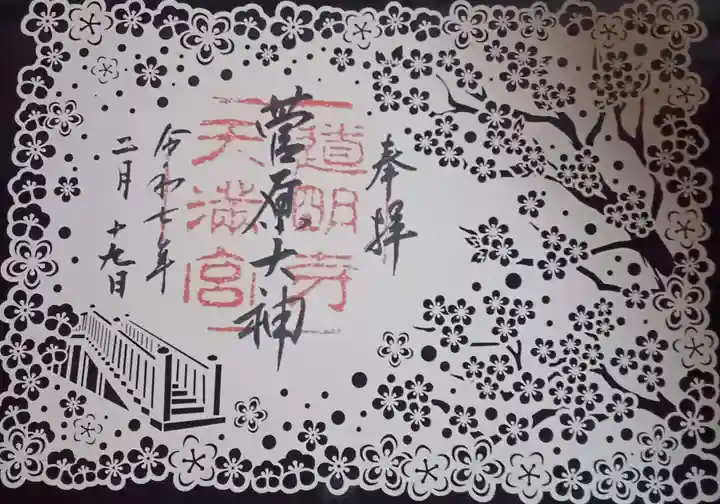 奉拝
道明寺
天満宮
菅原大神
令和七年
二月十九日